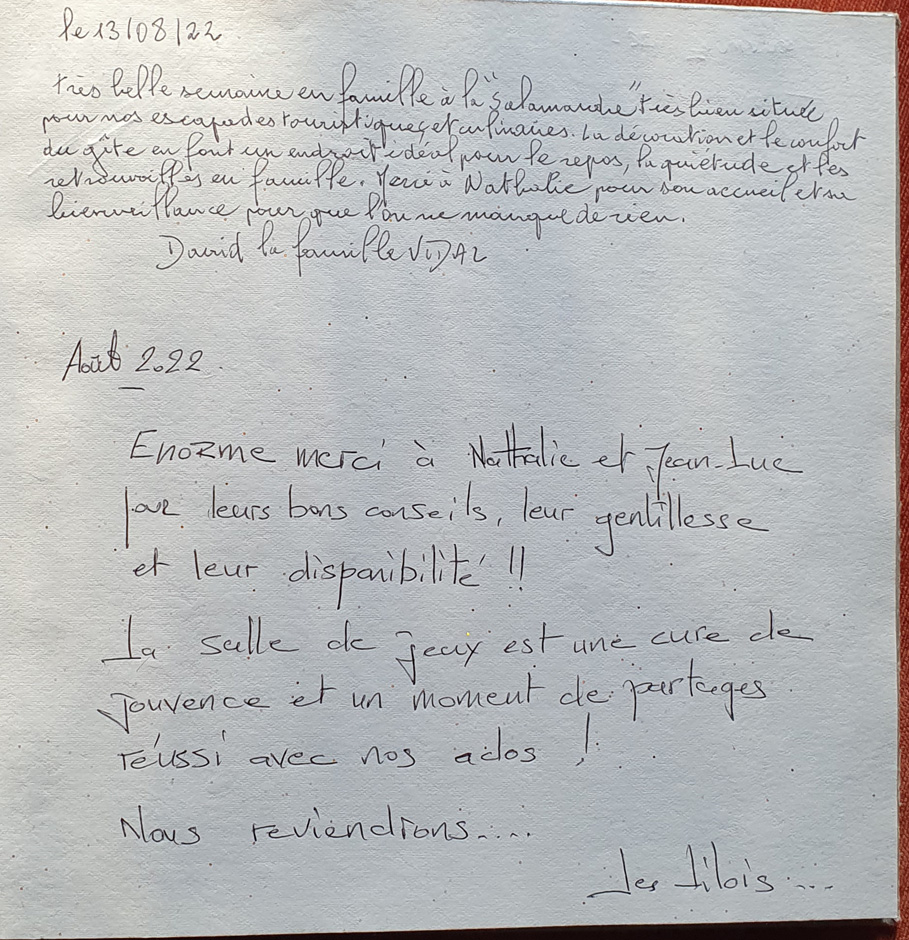 le 13/08/22
très belle semaine en famille à la "Salamandre" très bien située
pour nos escapades touristiques et culinaires. La décoration et le confort
du gîte en font un endroit idéal pour le repos, la quiétude et les
retrouvailles en famille. Merci à Nathalie pour son accueil et sa
bienveillance pour que l'on ne manque de rien.
David la famille VIDAL
Août 2022
Enorme merci à Nathalie et Jean-Luc
par leurs bons conseils, leur gentillesse
et leur disponibilité !!
La salle de jeux est une cure de
jouvence et un moment de partages
réussi avec nos ados !
Nous reviendrons....
Les Lilois...